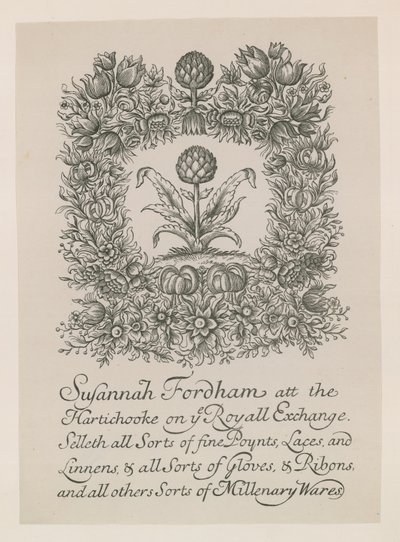 Suſannah Fordham att the
Hartichooke on yͤ Royall Exchange.
Selleth all Sorts of fine Poynts, Laces, and
Linnens, & all Sorts of Gloves, & Ribons,
and all others Sorts of Millenary Wares,